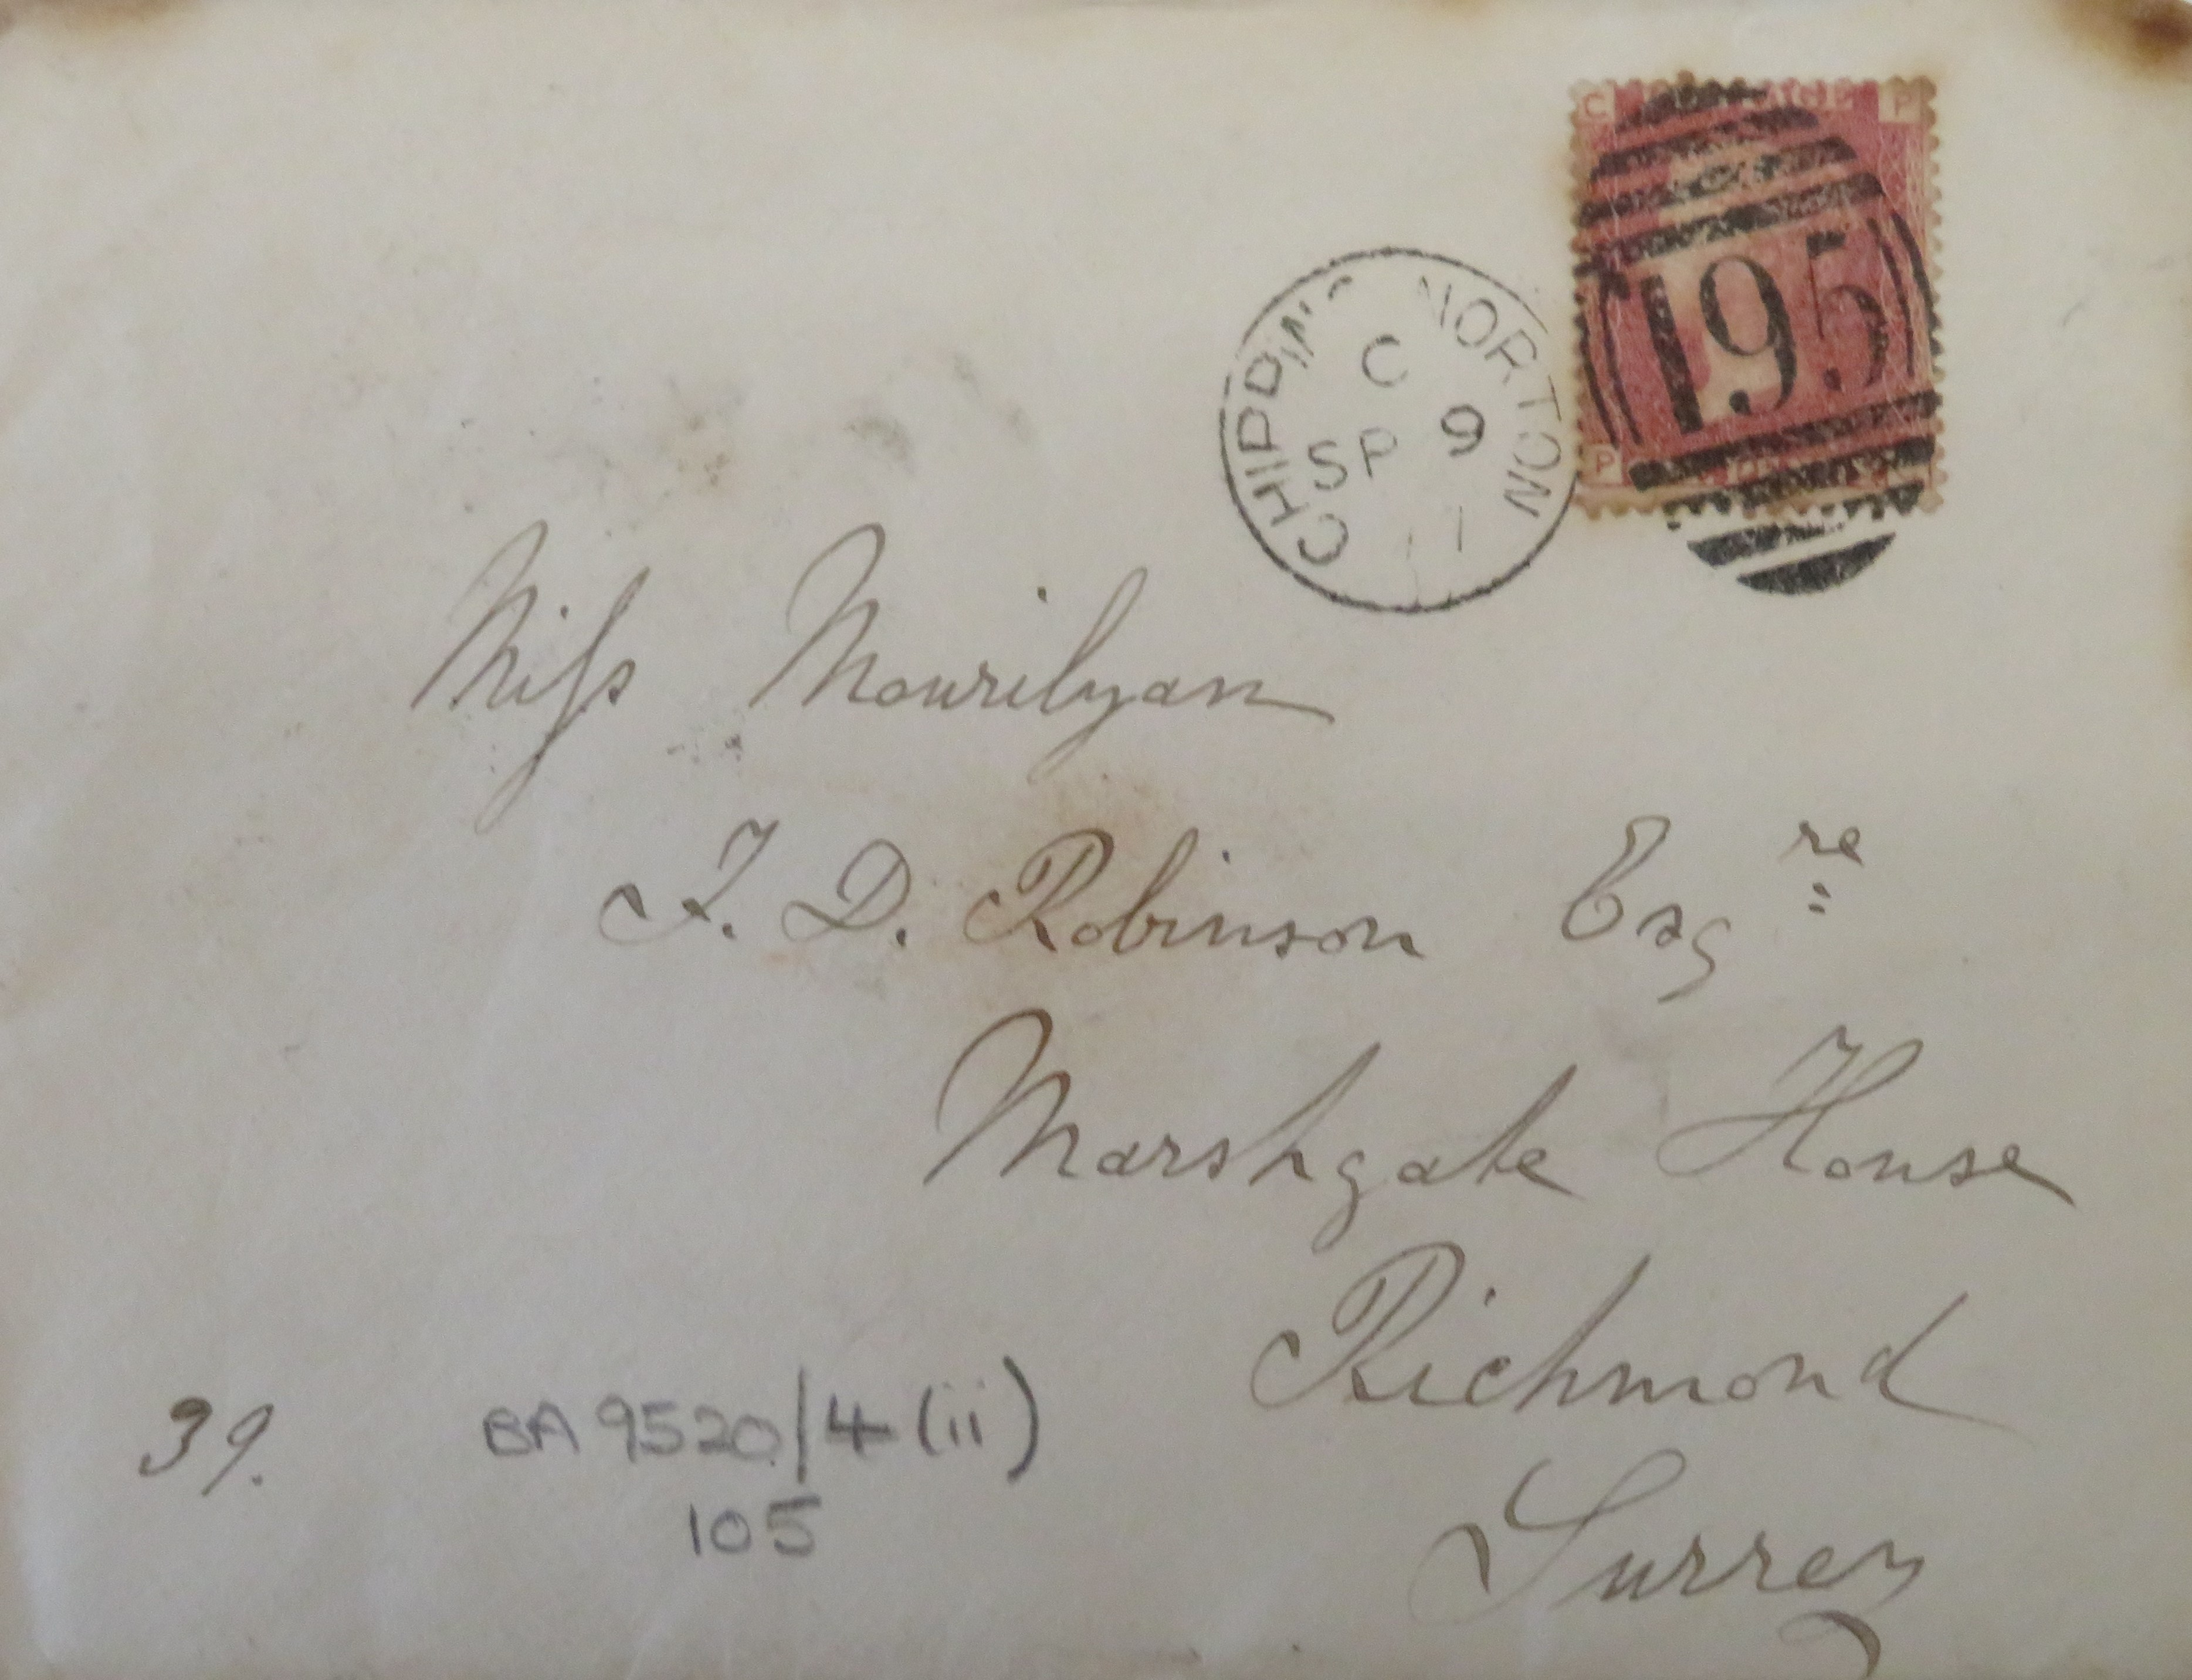 C POSTAGE P
195
P
CHIPPING NORTON
C
SP 9
Miss Mourilyan
T. D. Robinson Esqre
Marshgate House
Richmond
Surrey
39.
BA 9520/4 (ii)
105